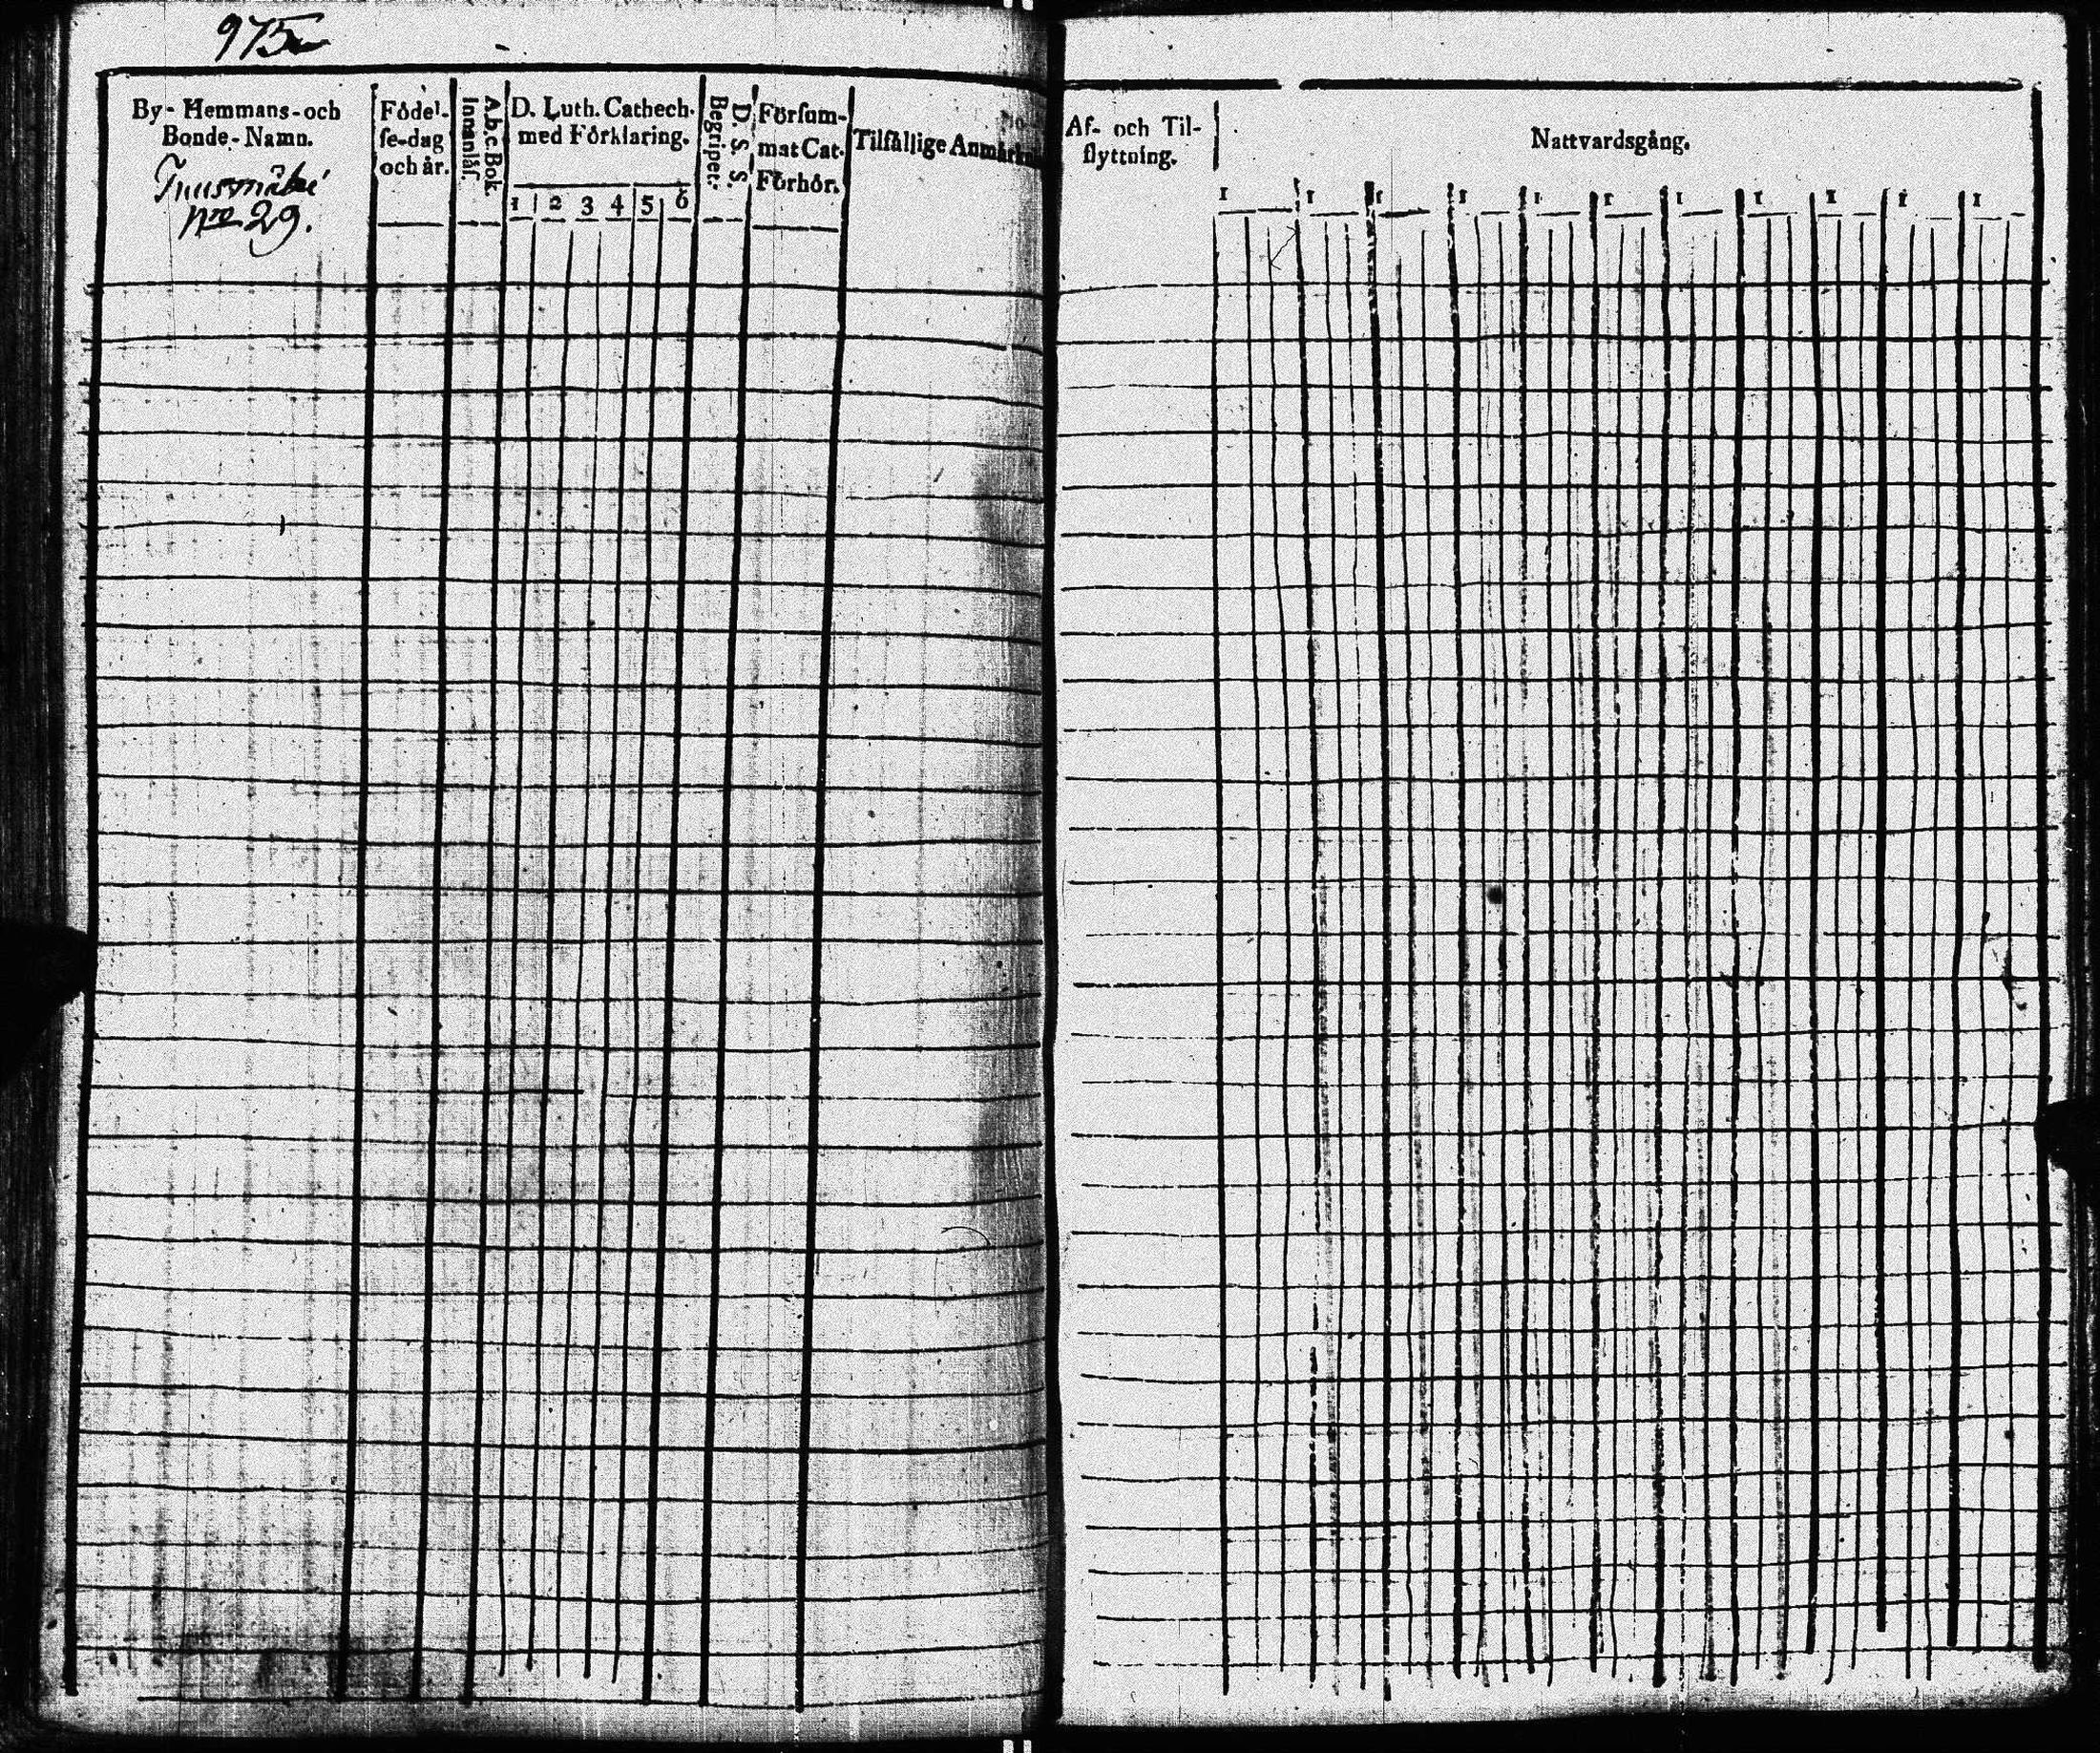 975
By- Hemmans-och
Bonde-Namn.
No 29.
Födel-
se-dag
och år.
A.b.c.Bok.
Innanläs.
D. Luth. Cathech.
med Förklaring.
1 2 3 4 5 6
D. S. S.
Begripet.
Försum-
mat Cat.
Förhör.
Tilfällige Anmärkn
Af- och Til-
flyttning.
Nattvardsgång.
1 1 1 1 1 1 1 1 1 1 1